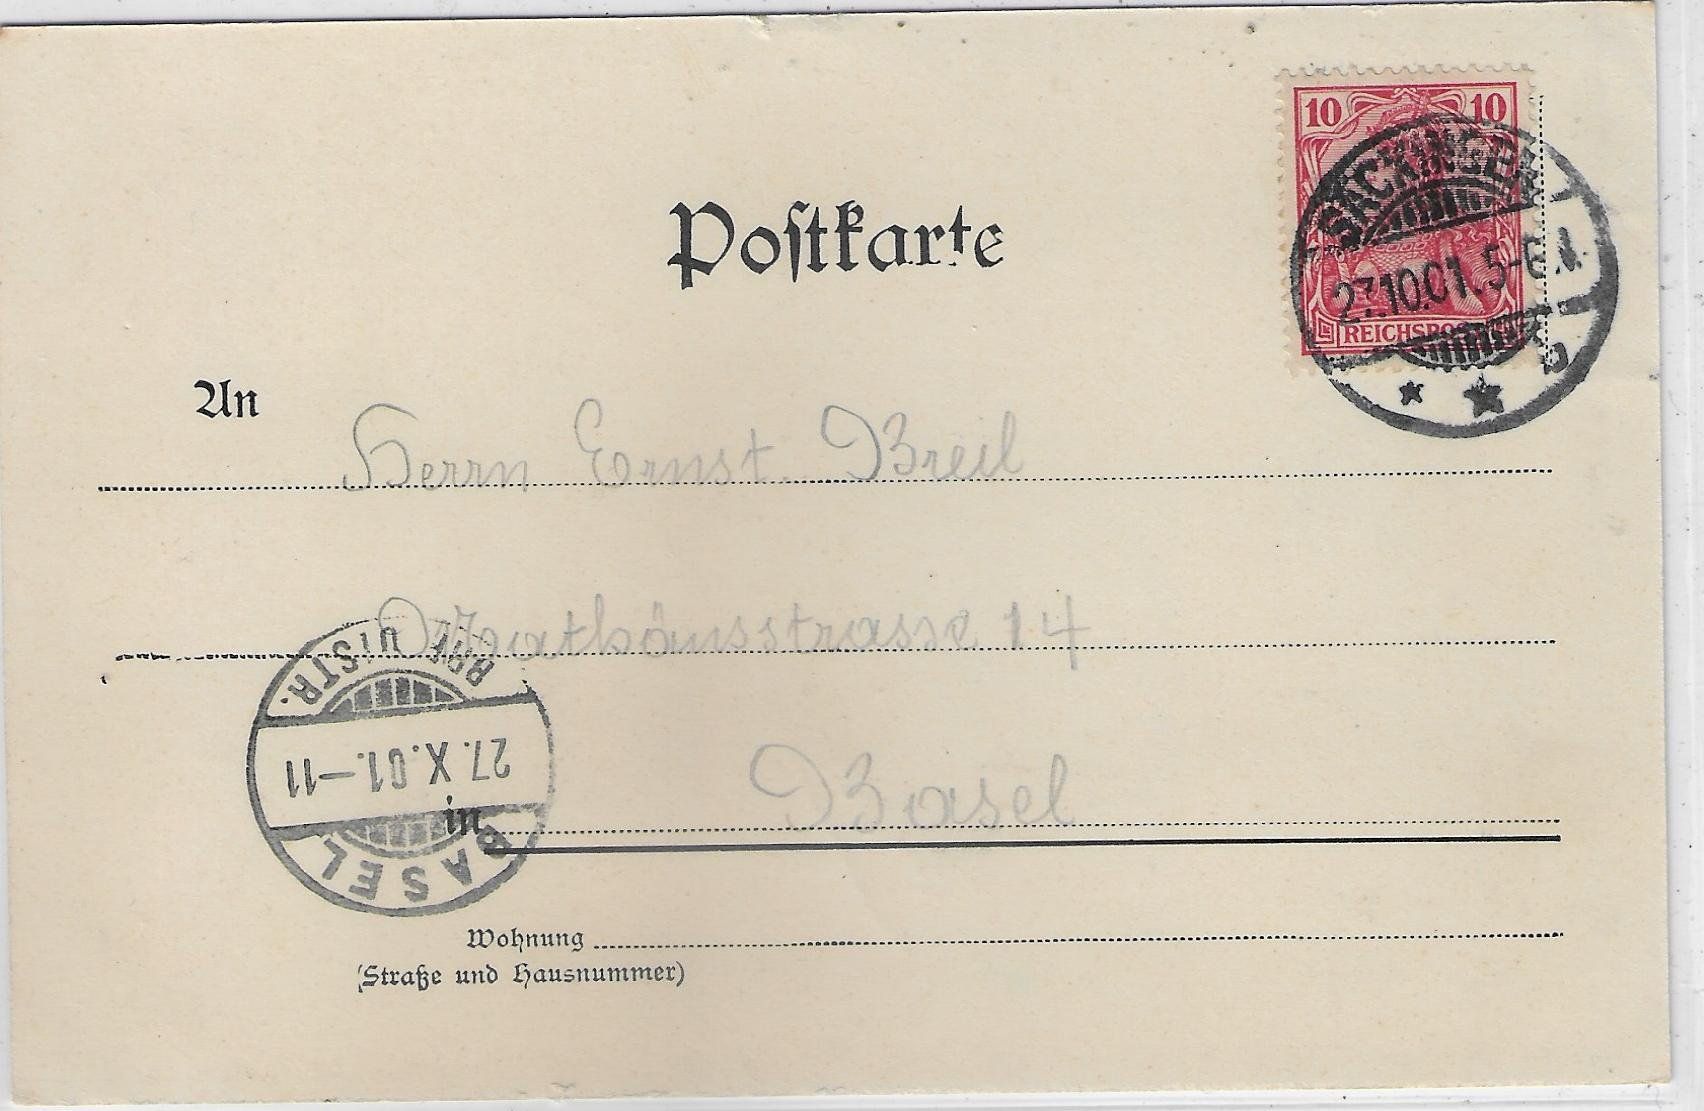 10 10
SÄCKINGEN
27.10.01. 5-6 N.
REICHSPOST
b
Postkarte
An
Herrn Ernst Breil
Mathäusstrasse 14
in Basel
BASEL
27. X. 01.–11
Wohnung
(Straße und Hausnummer)